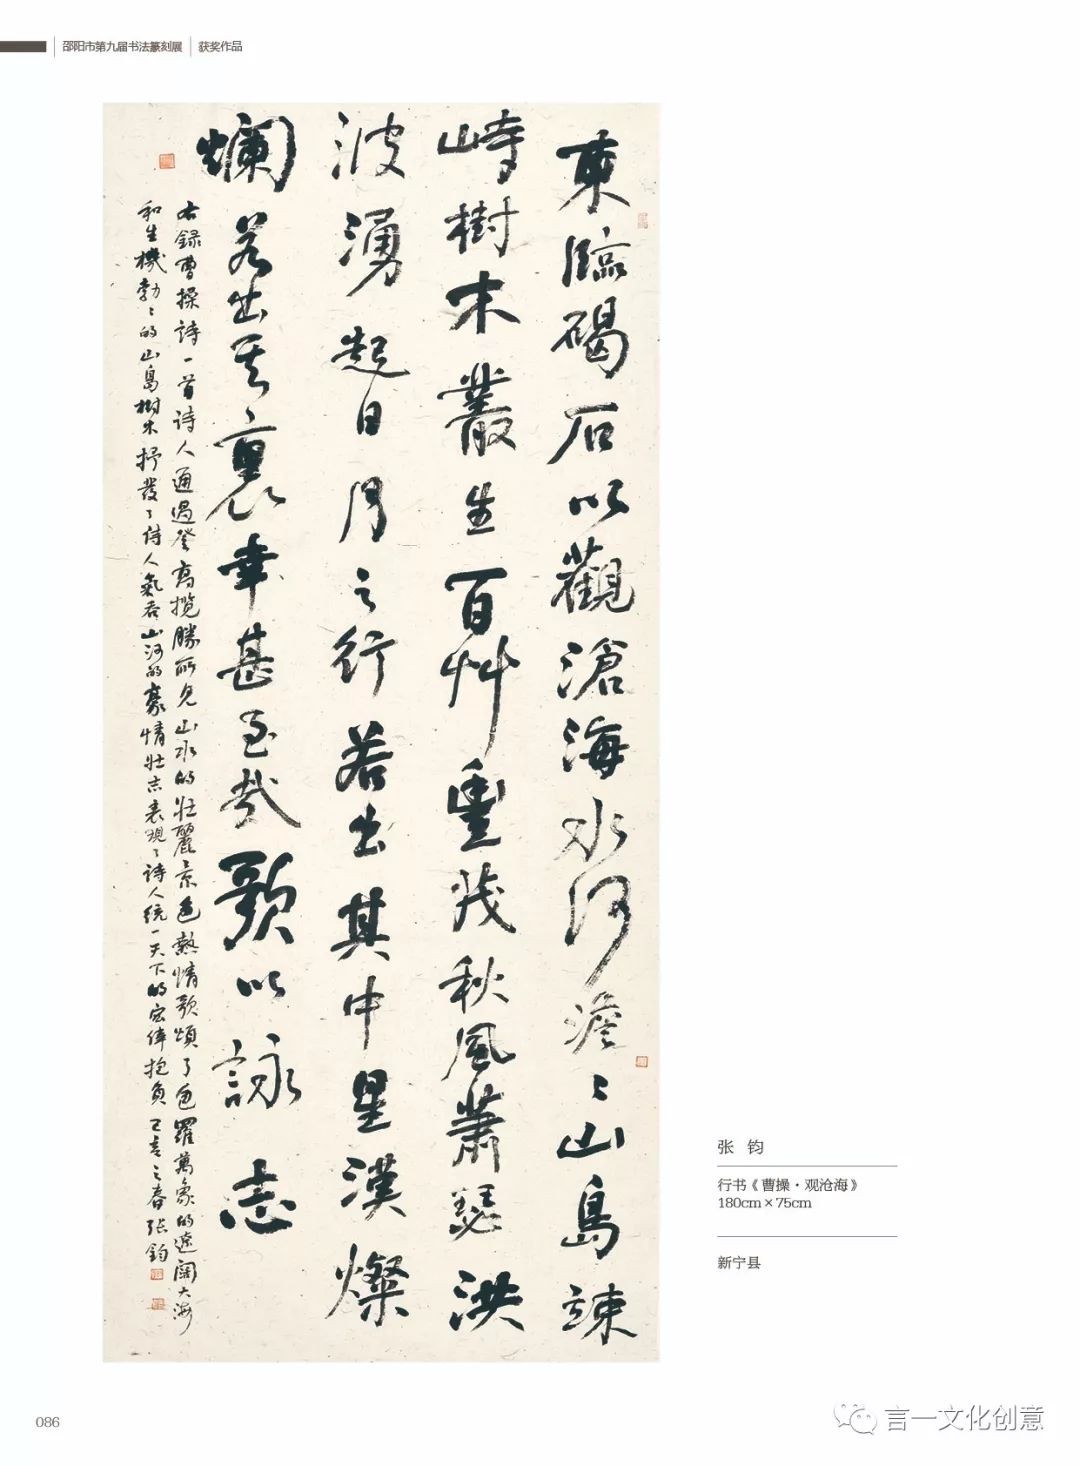 邵阳市第九届书法篆刻展 获奖作品
東臨碣石以觀滄海水何澹〻山島竦
峙樹木叢生百艸豐茂秋風蕭瑟洪
波湧起日月之行若出其中星漢燦
爛若出其裏幸甚至哉歌以詠志
右録曹操詩一首诗人通過登高攬勝所見山水的壮麗景色熱情歌頌了包羅萬象的遼闊大海
和生機勃〻的山島樹木抒發了诗人氣吞山河的豪情壮志表現了詩人統一天下的宏偉抱負 己亥之春張鈞
张 钧
行书《曹操·观沧海》
180cm×75cm
新宁县
086
言一文化创意